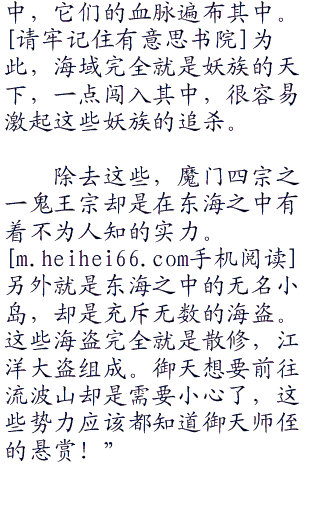 中，它们的血脉遍布其中。
[请牢记住有意思书院]为
此，海域完全就是妖族的天
下，一点闯入其中，很容易
激起这些妖族的追杀。
除去这些，魔门四宗之
一鬼王宗却是在东海之中有
着不为人知的实力。
[m.heihei66.com手机阅读]
另外就是东海之中的无名小
岛，却是充斥无数的海盗。
这些海盗完全就是散修，江
洋大盗组成。御天想要前往
流波山却是需要小心了，这
些势力应该都知道御天师侄
的悬赏！”